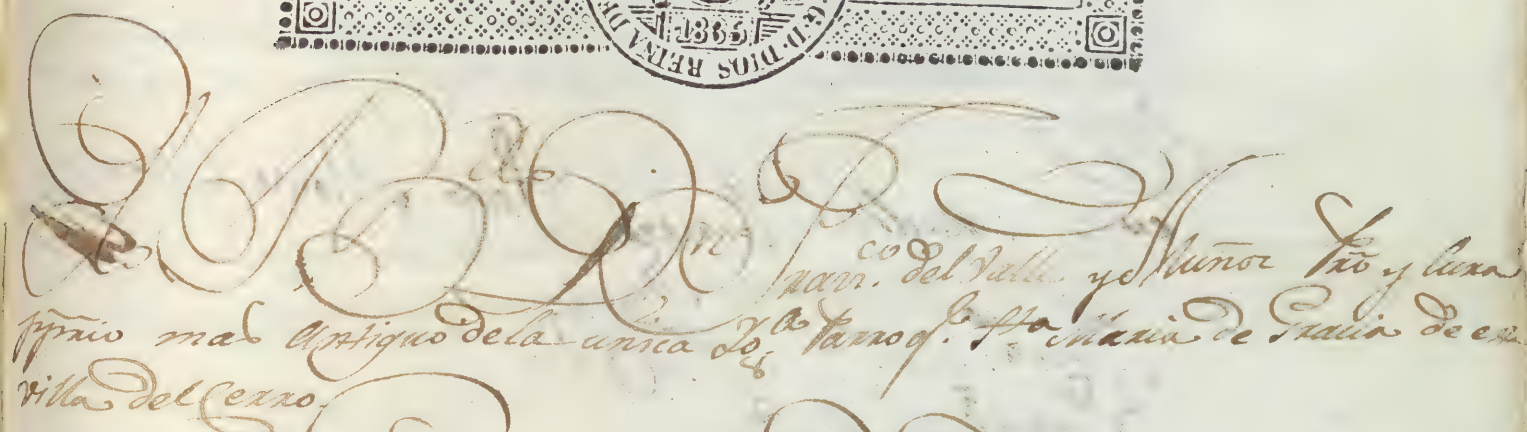 1833
G. D. DIOS REINA DE
Yo el B. Dn. Franco. del Valle y Muñoz Pro y Cura
ppnio mas Antiguo de la unica Ygla Parroql. Sta Maria de Gracia de esta
villa del Cerro